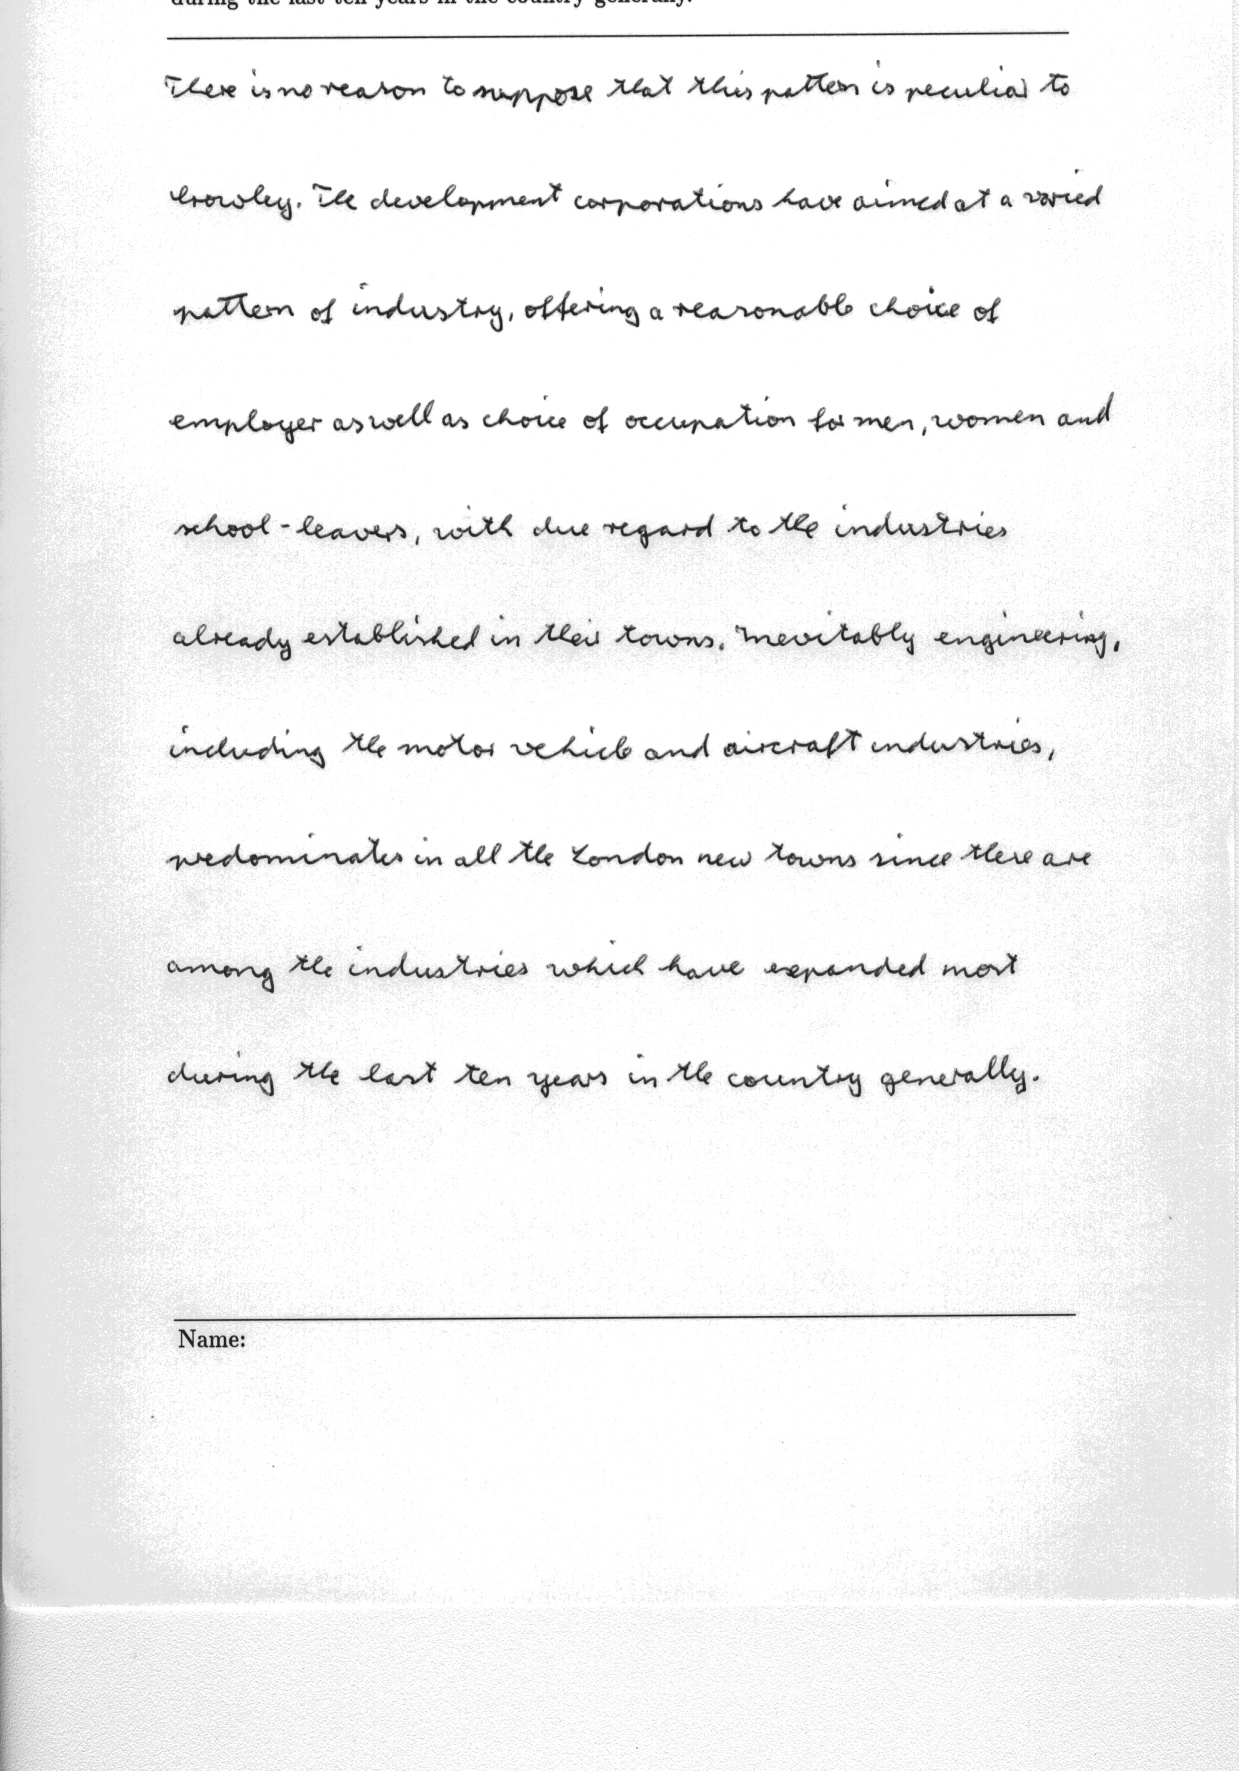 during the last ten years in the country generally.
There is no reason to suppose that this pattern is peculiar to
Crawley. The development corporations have aimed at a varied
pattern of industry, offering a reasonable choice of
employer as well as choice of occupation for men, women and
school-leavers, with due regard to the industries
already established in their towns. Inevitably engineering,
including the motor vehicle and aircraft industries,
predominates in all the London new towns since these are
among the industries which have expanded most
during the last ten years in the country generally.
Name: